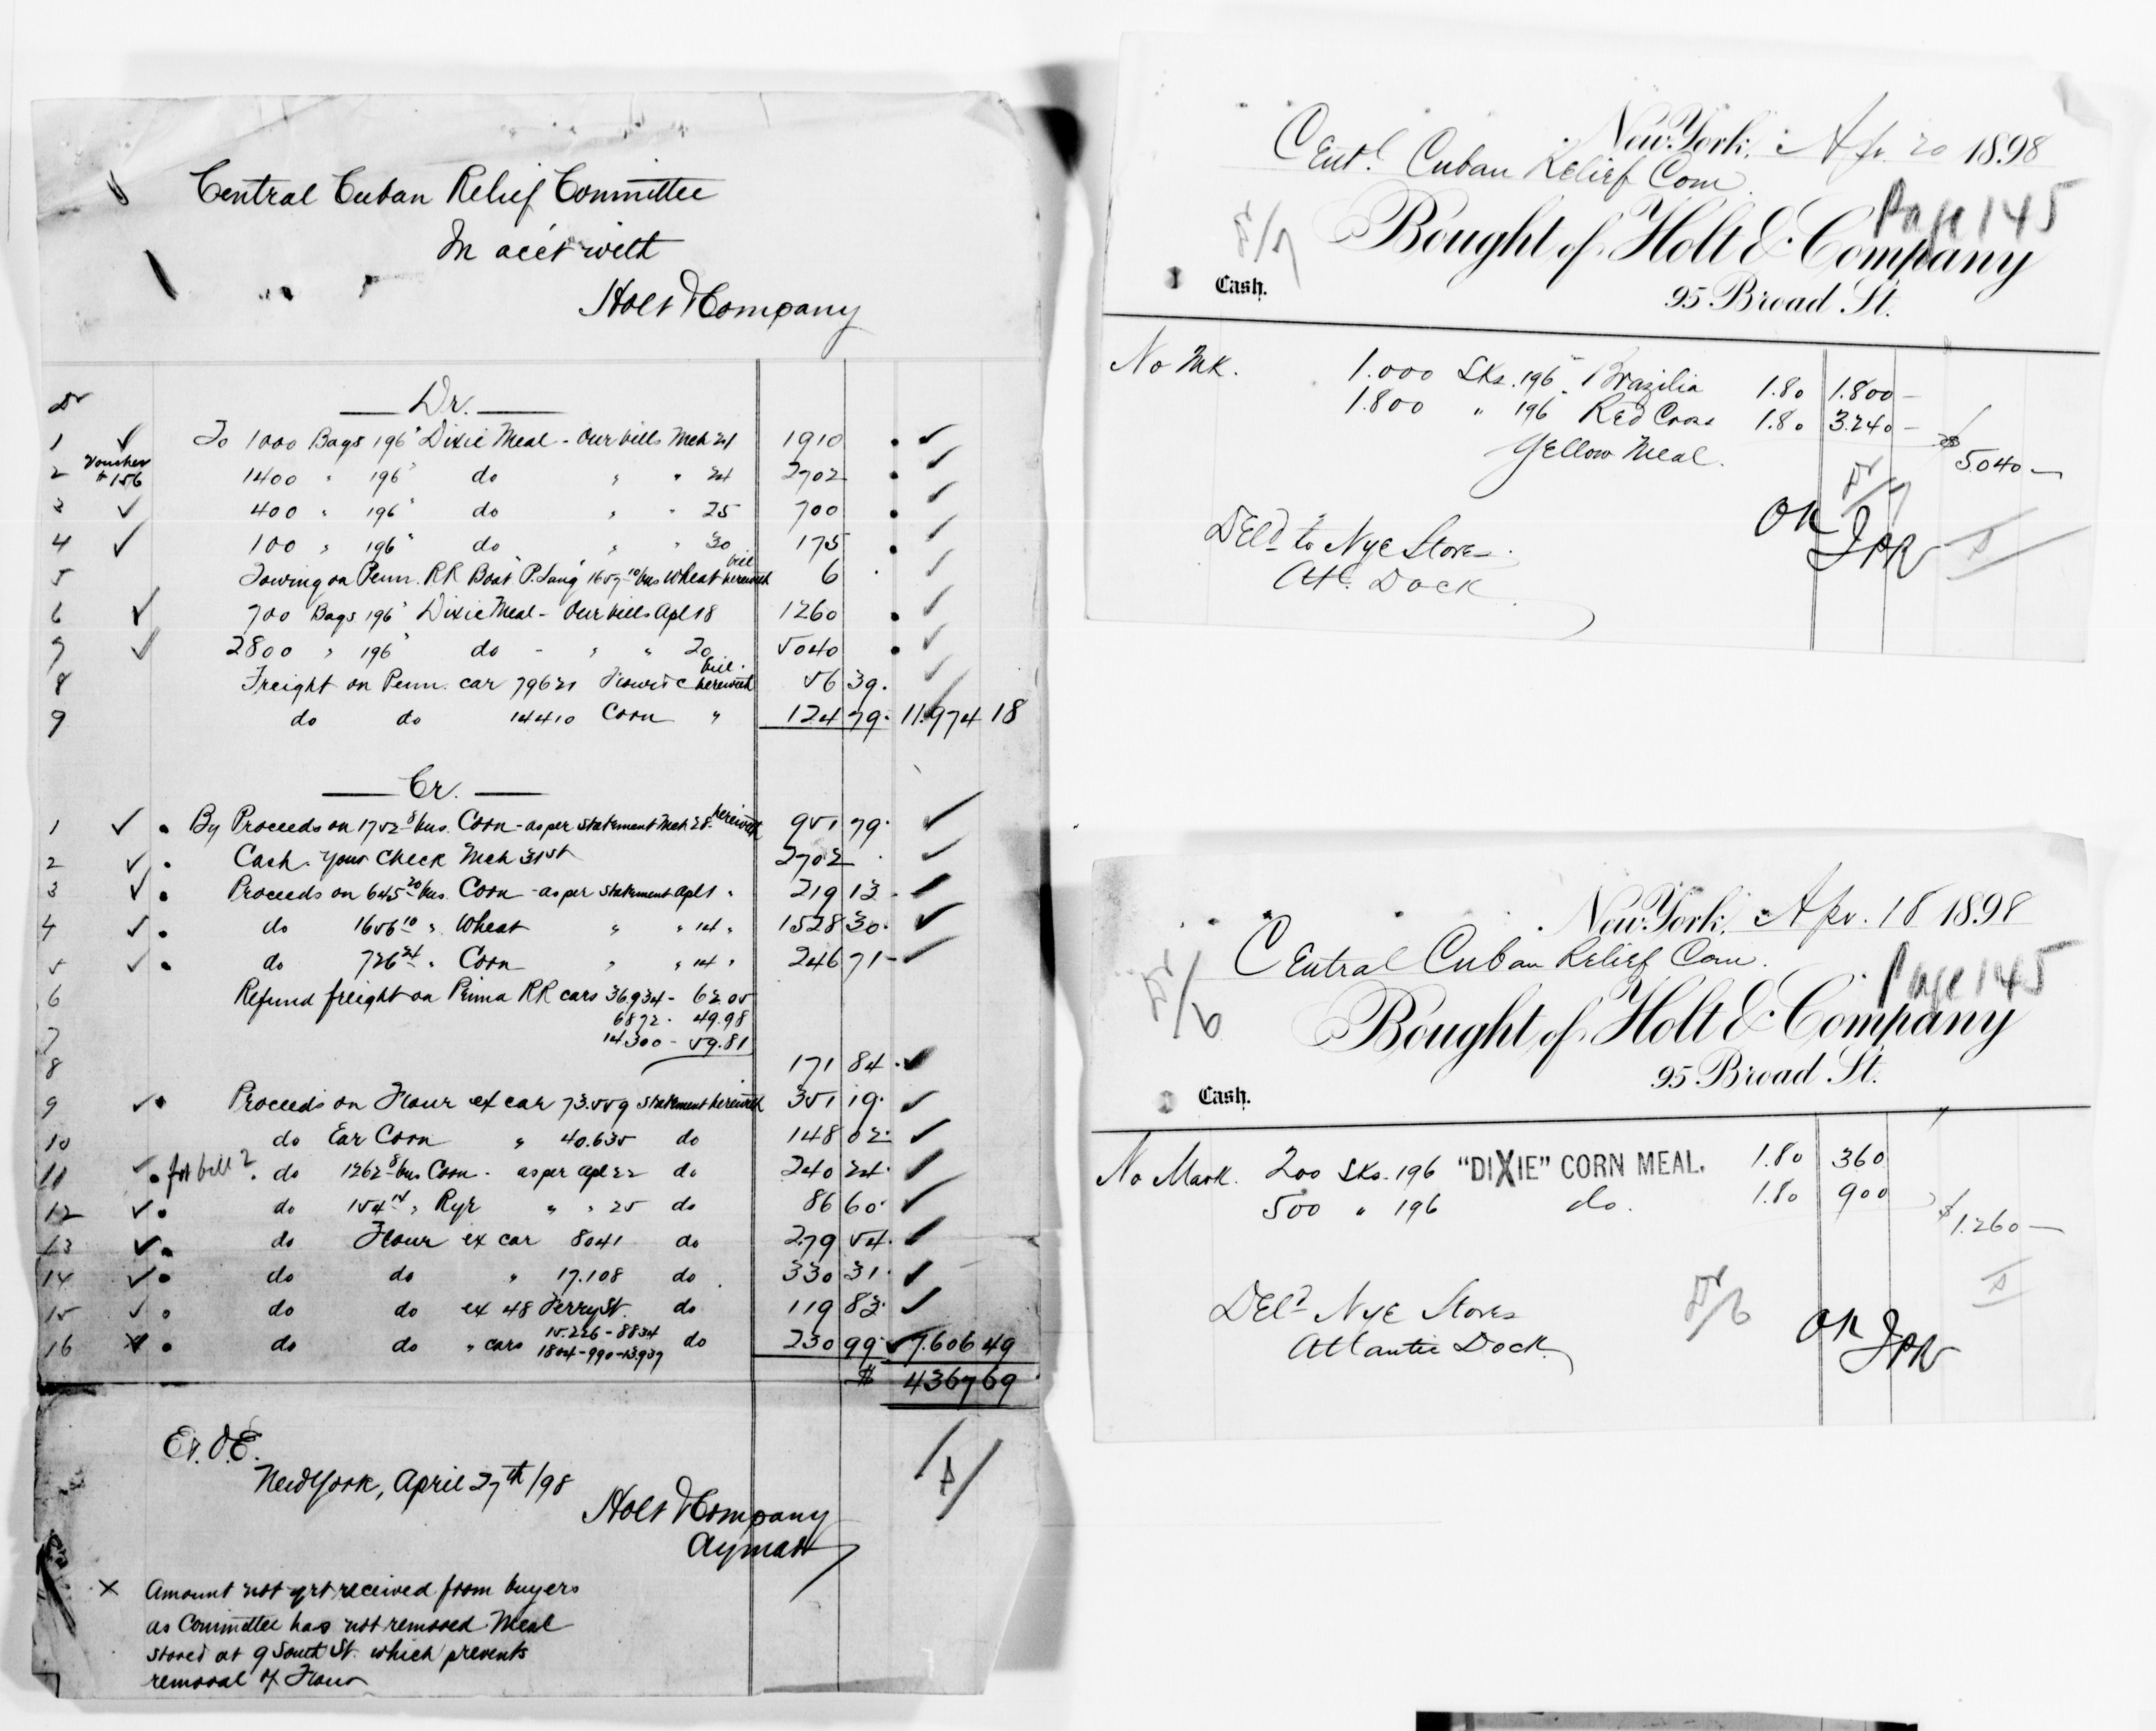 Central Cuban Relief Committee
In acct with
Holt & Company
Dr
Dr.
1 To 1000 Bags 196" Dixie Meal - Our bills Mch 21 1910
2 Voucher #156 1400 " 196" do " " 24 2702
3 400 " 196" do " " 25 700
4 100 " 196" do " " 30 175
5 Towing on Penn. RR Boat "P. Lang" 1657 10/ bus Wheat bill herewith 6
6 700 Bags 196" Dixie Meal - Our bills Apl 18 1260
7 2800 " 196" do - " " 20 5040
8 Freight on Penn. car 79621 Flour &c bill herewith 56 39
9 do do 14410 Corn " 124 79 11.974 18
Cr.
1 By Proceeds on 1752 8/ bus. Corn - as per statement Mch 28 herewith 951 79
2 Cash. Your Check Mch 31st 2702
3 Proceeds on 645 20/ bus. Corn - as per statement Apl 1 " 219 13
4 do 1656 10 " Wheat " " 14 " 1528 30
5 do 726 24 " Corn " " 14 " 246 71
6 Refund freight on Penna RR cars 36.934 - 62.05
7 6872 - 49.98
14300 - 59.81
8 171 84
9 Proceeds on Flour ex car 73.559 statement herewith 351 19
10 do Ear Corn " 40.635 do 148 02
11 for bill ? do 1262 8/ bus Corn - as per Apl 22 do 240 24
12 do 154 14 " Rye " " 25 do 86 60
13 do Flour ex car 8041 do 279 54
14 do do " 17.108 do 330 31
15 do do ex 48 Ferry St. do 119 83
16 do do " cars 15.226 - 8834 do 230 99 7.606 49
1804 - 990 - 13.937
$ 4367 69
E. & O. E.
New York, April 27th/98
Holt & Company
Aymar
x Amount not yet received from buyers
as Committee has not removed Meal
stored at 9 South St. which prevents
removal of Flour
New York, Apr. 20 1898
Centl. Cuban Relief Com.
Page 145
Dr/7
Bought of Holt & Company
Cash.
95 Broad St.
No Mk. 1.000 Sks. 196" Brazilia 1.80 1.800 -
1.800 " 196" Red Cross 1.80 3.240 -
Yellow Meal. $ 5.040 -
Dr/7
Deld to Nye Stores
Atl. Dock
OK
New York, Apr. 18 1898
Central Cuban Relief Com.
Page 145
Dr/6
Bought of Holt & Company
95 Broad St.
Cash.
No Mark. 200 Sks. 196 "DIXIE" CORN MEAL. 1.80 360
500 " 196 do. 1.80 900
$ 1.260 -
Deld Nye Stores
Atlantic Dock.
Dr/6
OK